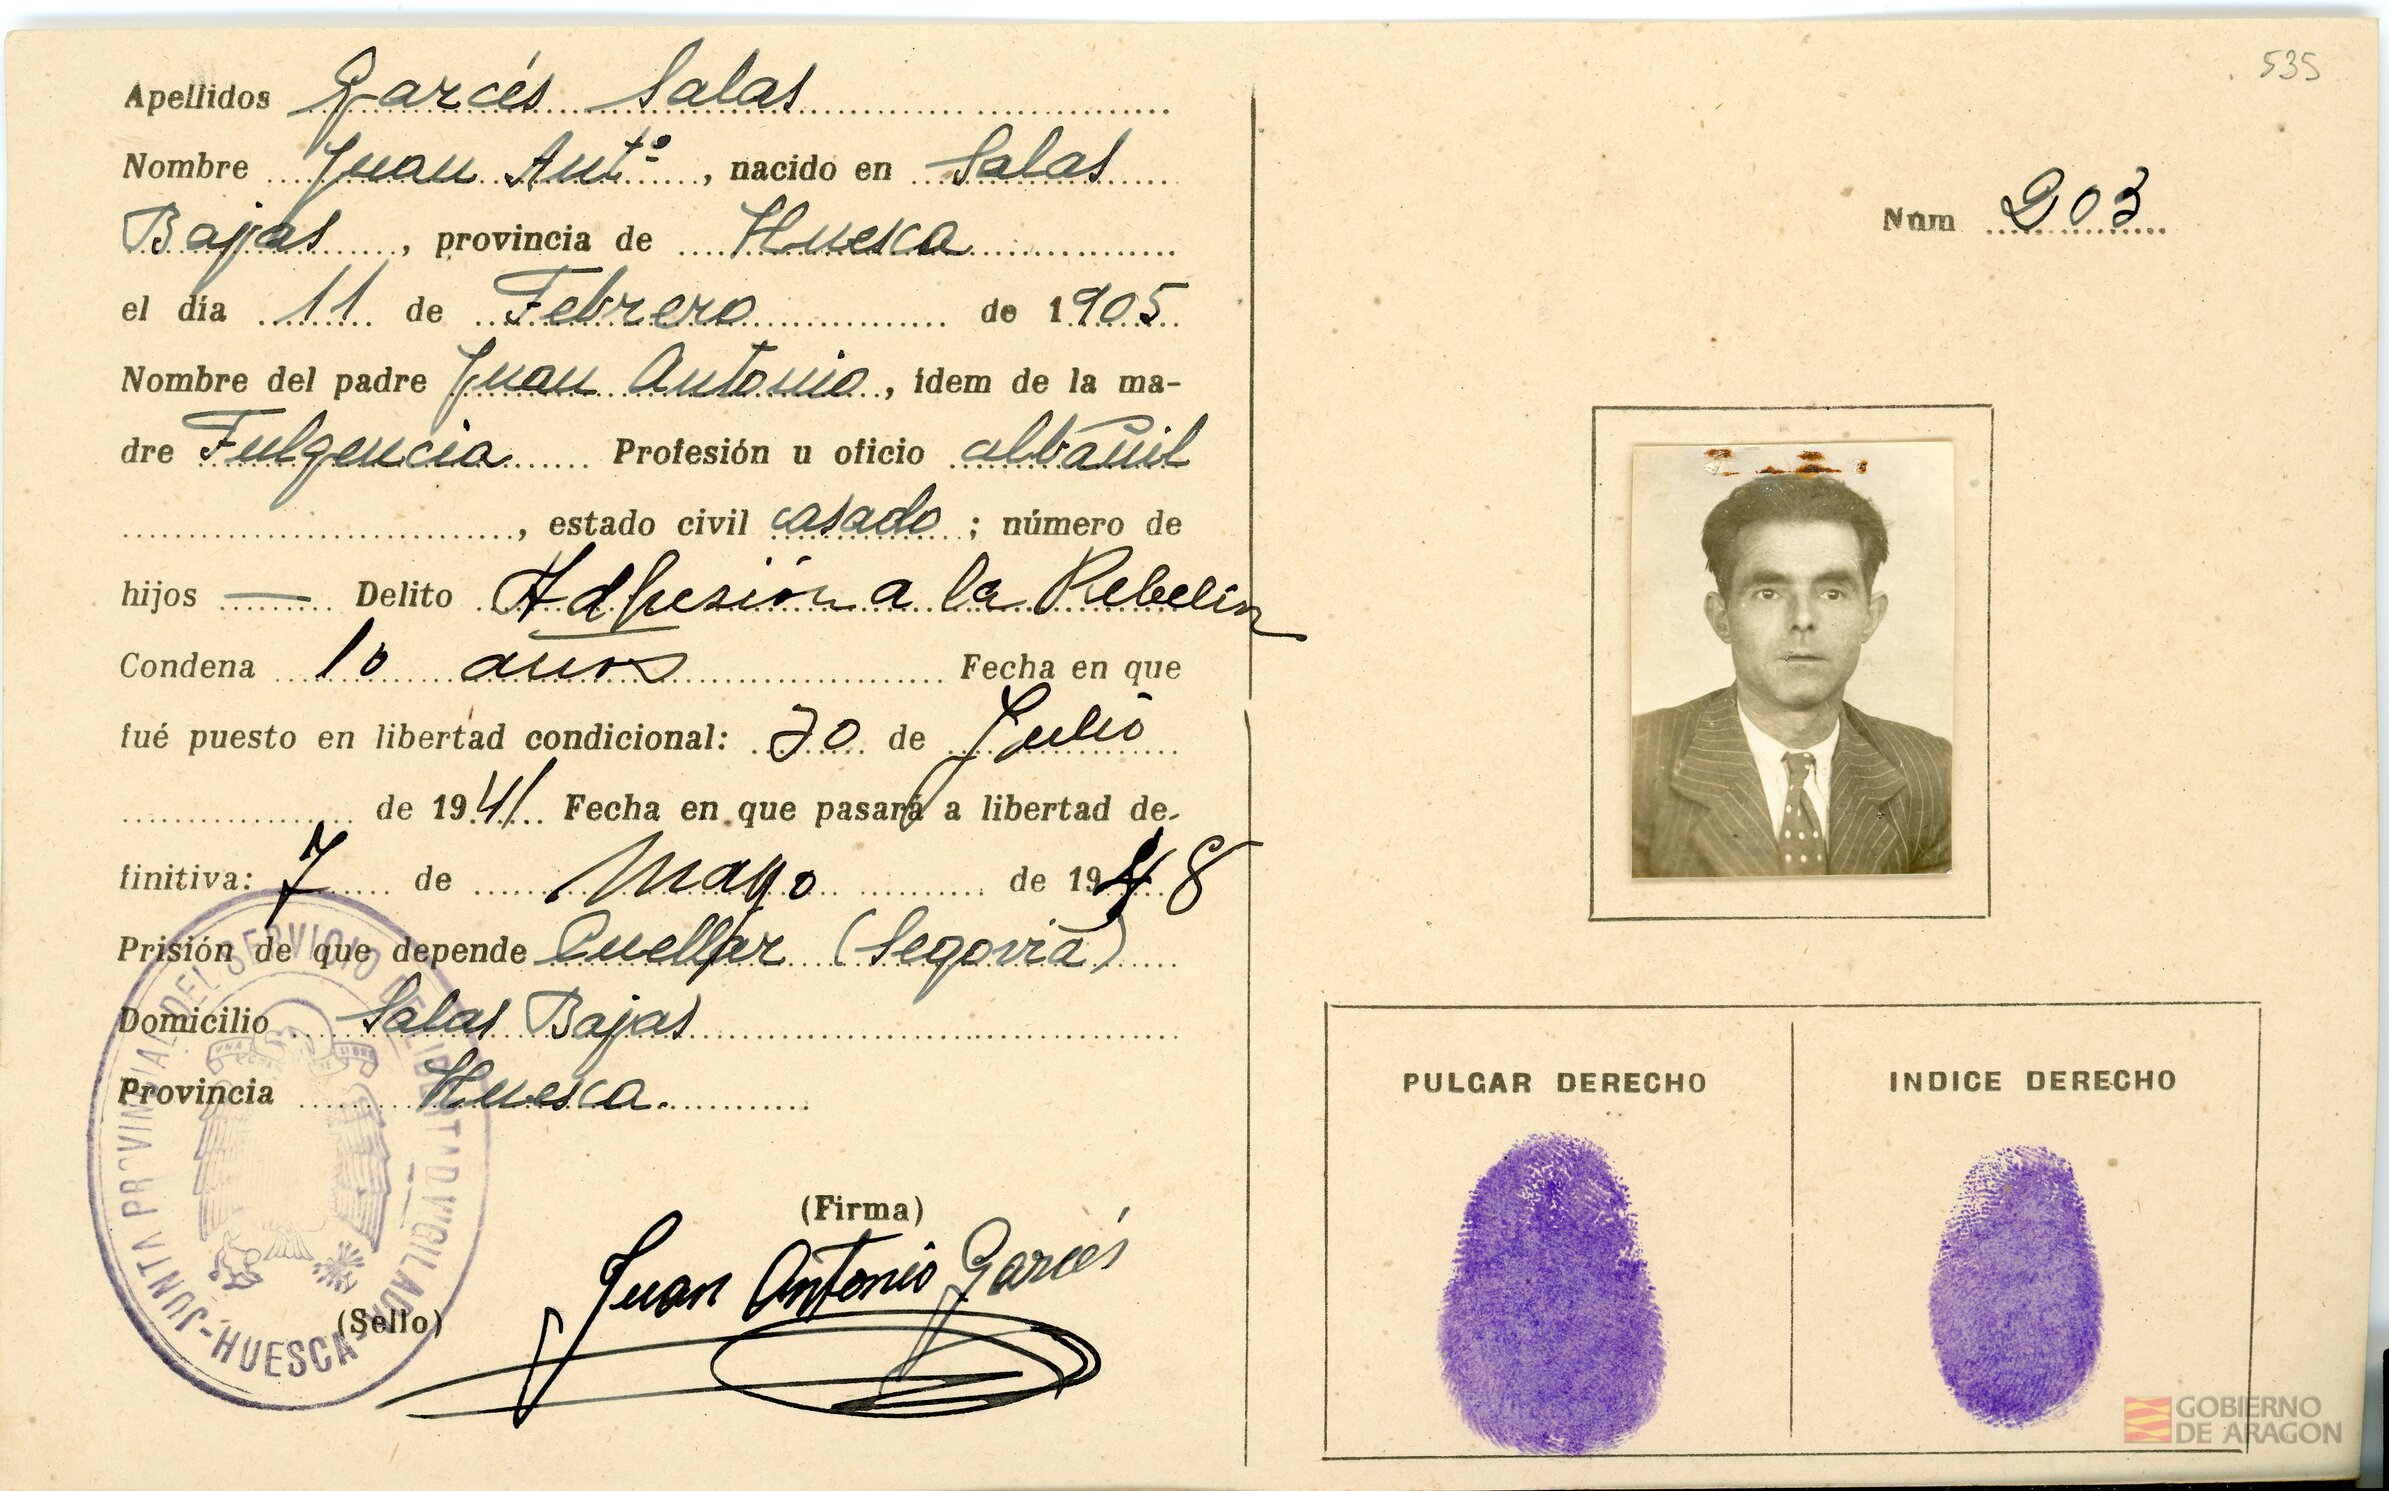 Apellidos Garcés Salas
Nombre Juan Antº, nacido en Salas
Bajas, provincia de Huesca
el día 11 de Febrero de 1905
Nombre del padre Juan Antonio, idem de la ma-
dre Fulgencia Profesión u oficio albañil
, estado civil casado; número de
hijos — Delito Adhesión a la Rebelión
Condena 10 años Fecha en que
fué puesto en libertad condicional: 30 de Julio
de 1941 Fecha en que pasará a libertad de-
finitiva: 7 de Mayo de 1948
Prisión de que depende Cuellar (Segovia)
Domicilio Salas Bajas
Provincia Huesca.
(Firma)
Juan Antonio Garcés
(Sello)
JUNTA PROVINCIAL DEL SERVICIO DE LIBERTAD VIGILADA
-HUESCA-
535
Núm 203
PULGAR DERECHO
INDICE DERECHO
GOBIERNO
DE ARAGON